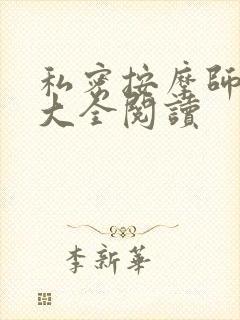 私密按摩師
大全閱讀
李新華